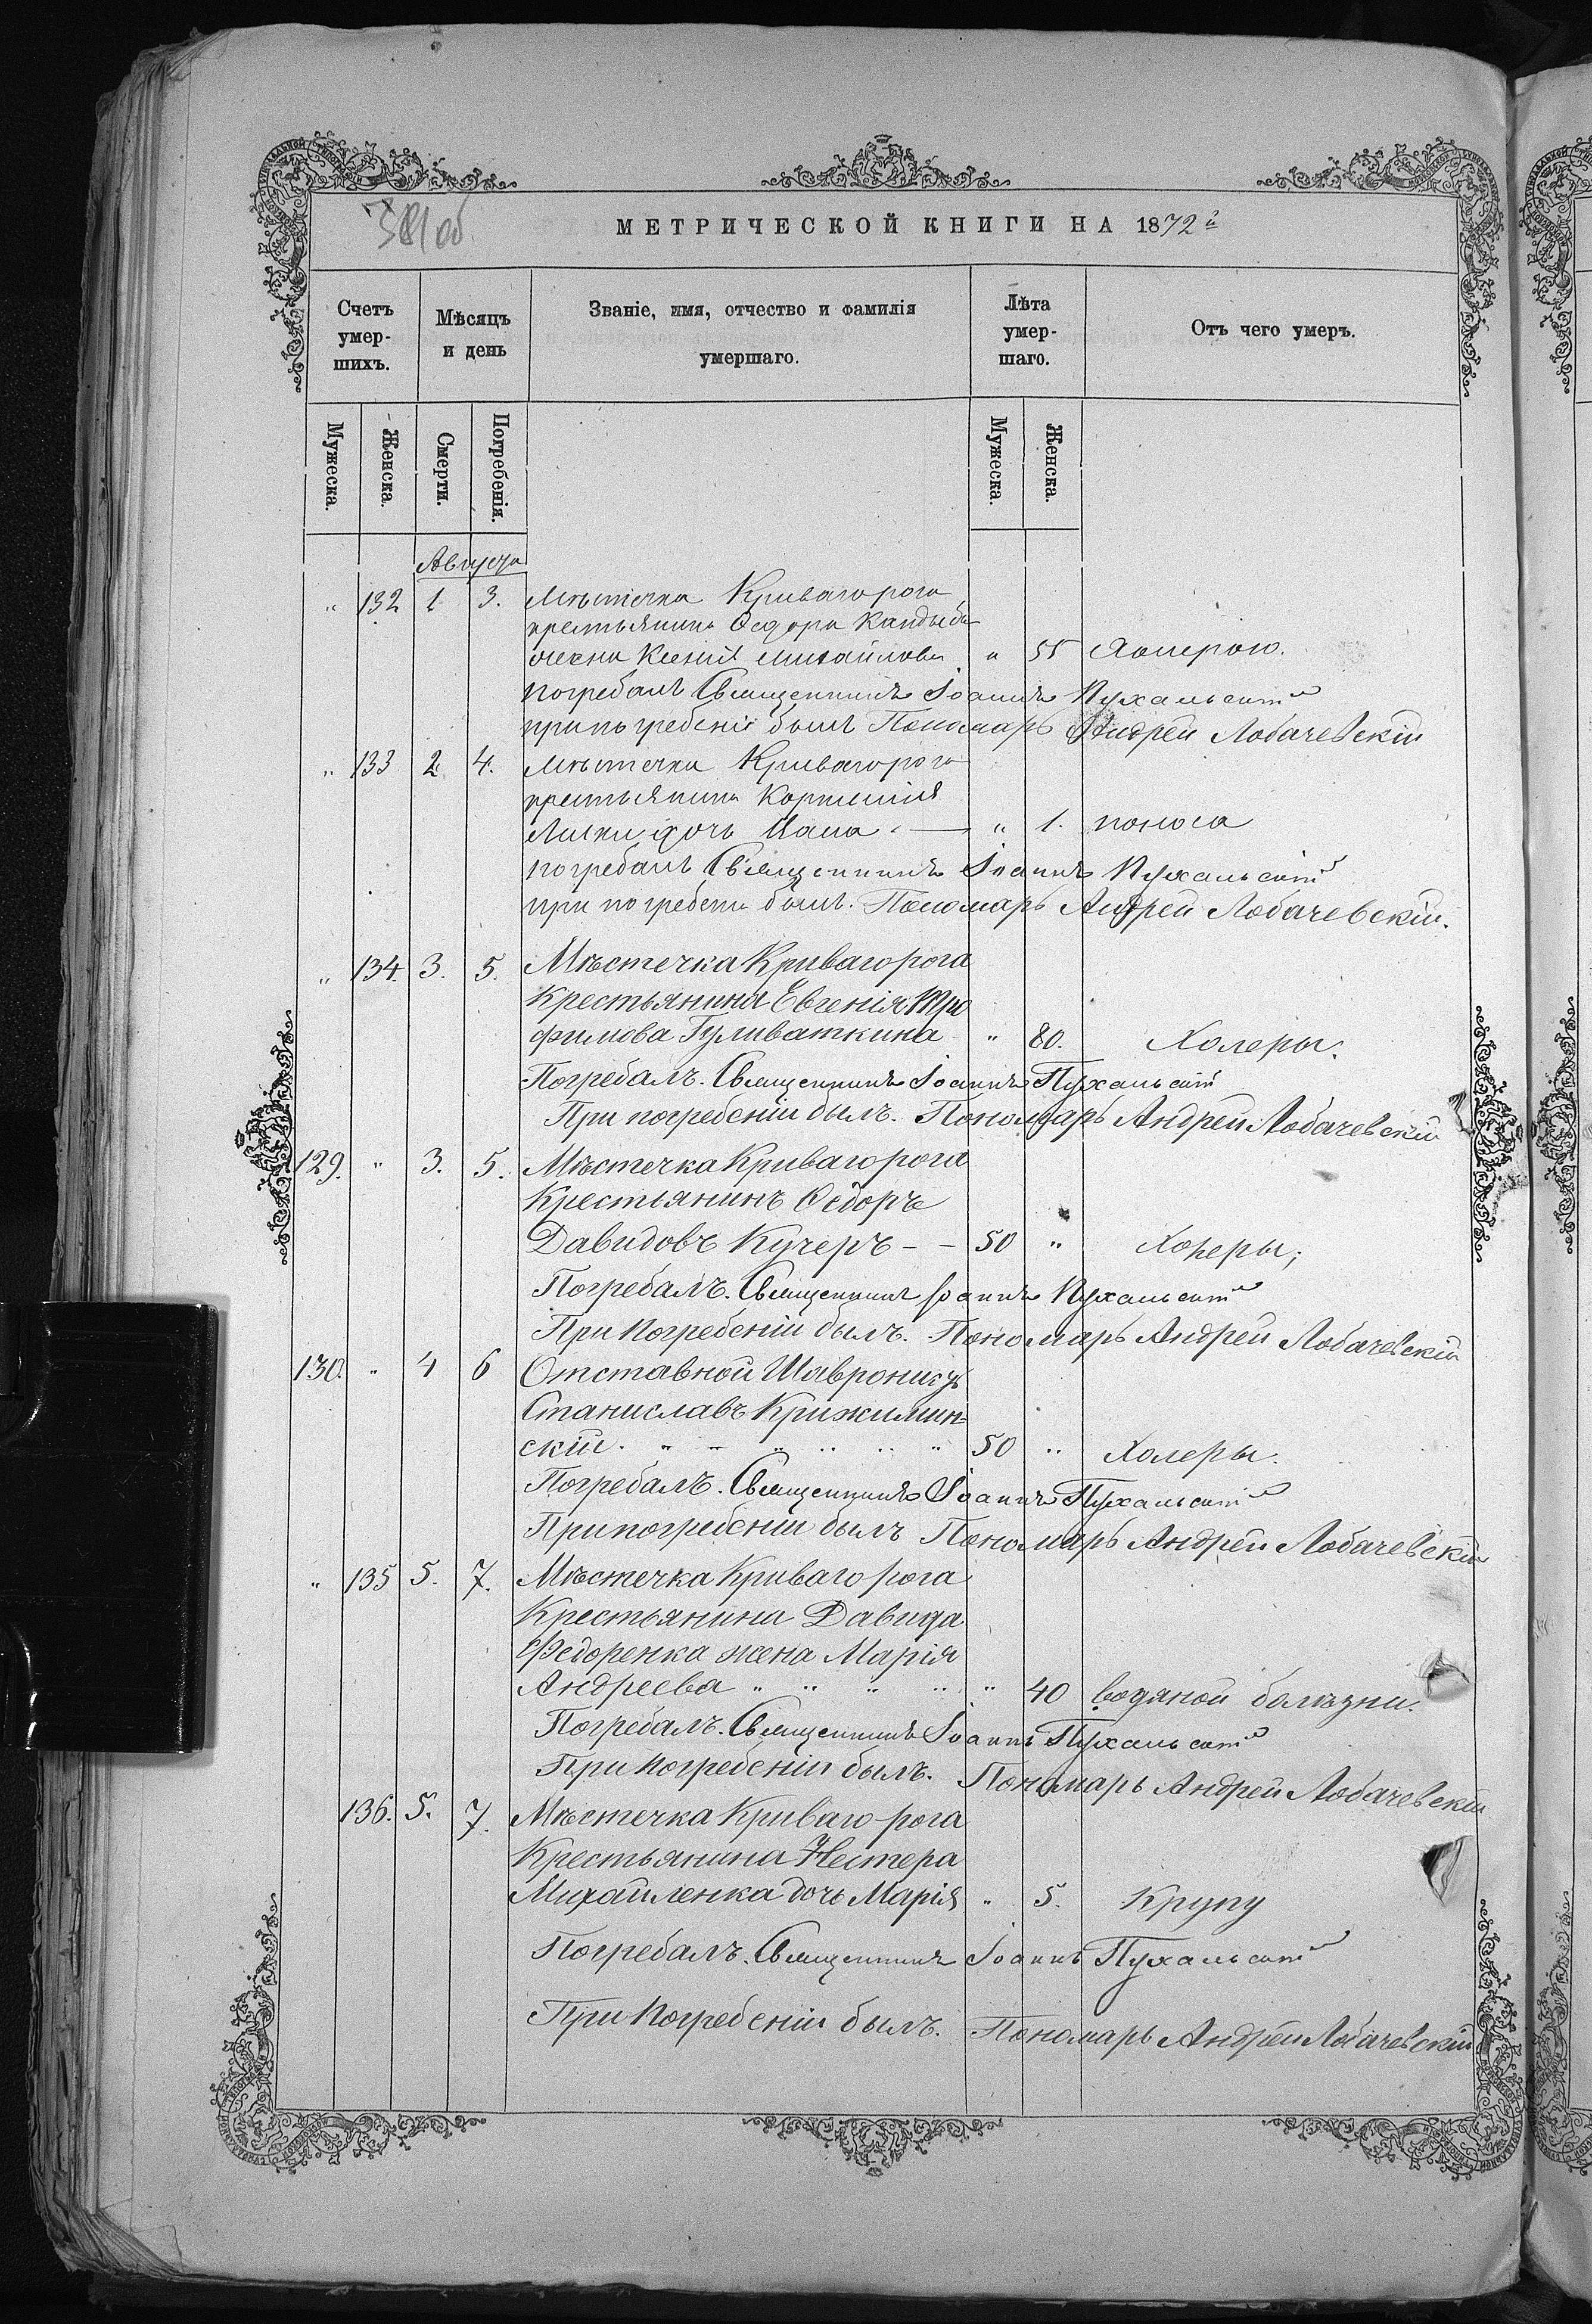 381 об
МЕТРИЧЕСКОЙ КНИГИ НА 1872й
Счетъ умер-шихъ.
Мѣсяцъ и день
Званіе, имя, отчество и фамилія умершаго.
Лѣта умер-шаго.
Отъ чего умеръ.
Мужеска.
Женска.
Смерти.
Погребенія.
Мужеска.
Женска.
Августа
" 132 1 3. Мѣстечка Кривагорога
крестьянина Ѳедора Кандыбы
жена Ксенія Михайлова " 55 Холерою.
погребалъ Священникъ Іоаннъ Пухальскій
при погребеніи былъ Пономарь Андрей Лобачевскій
" 133 2 4. Мѣстечка Кривагорога
крестьянина Корнилія
дочь " 1. поноса
погребалъ Священникъ Іоаннъ Пухальскій
при погребени былъ. Пономарь Андрей Лобачевскій.
" 134. 3. 5. Мѣстечка Кривагорога
Крестьянина Евгенія Тро
фимова Гуливаткина " 80. Холеры.
Погребалъ. Священникъ Іоаннъ Пухальскій
При погребеніи былъ. Пономарь Андрей Лобачевскій
129. " 3. 5. Мѣстечка Кривагорога
Крестьянинъ Ѳедоръ
Давидовъ Кучеръ - - 50 " Холеры;
Погребалъ. Священникъ Іоаннъ Пухальскій
При Погребеніи былъ. Пономарь Андрей Лобачевскій
130. " 4 6 Отставной
Станиславъ Крижимин=
скій. " - " " " " 50 " Холеры.
Погребалъ. Священникъ Іоаннъ Пухальскій
При погребеніи былъ Пономарь Андрей Лобачевскій
" 135 5. 7. Мѣстечка Криваго рога
Крестьянина Давида
Федоренка жена Марія
Андреева " " " " " 40 водяной болѣзни.
Погребалъ. Священникъ Іоаннъ Пухальскій
При Погребеніи былъ. Пономарь Андрей Лобачевскій
136. 5. 7. Мѣстечка Криваго рога
Крестьянина Нестера
Михайленка дочь Марія " 5. Крупу
Погребалъ. Священникъ Іоаннъ Пухальскій
При Погребеніи былъ. Пономарь Андрей Лобачевскій